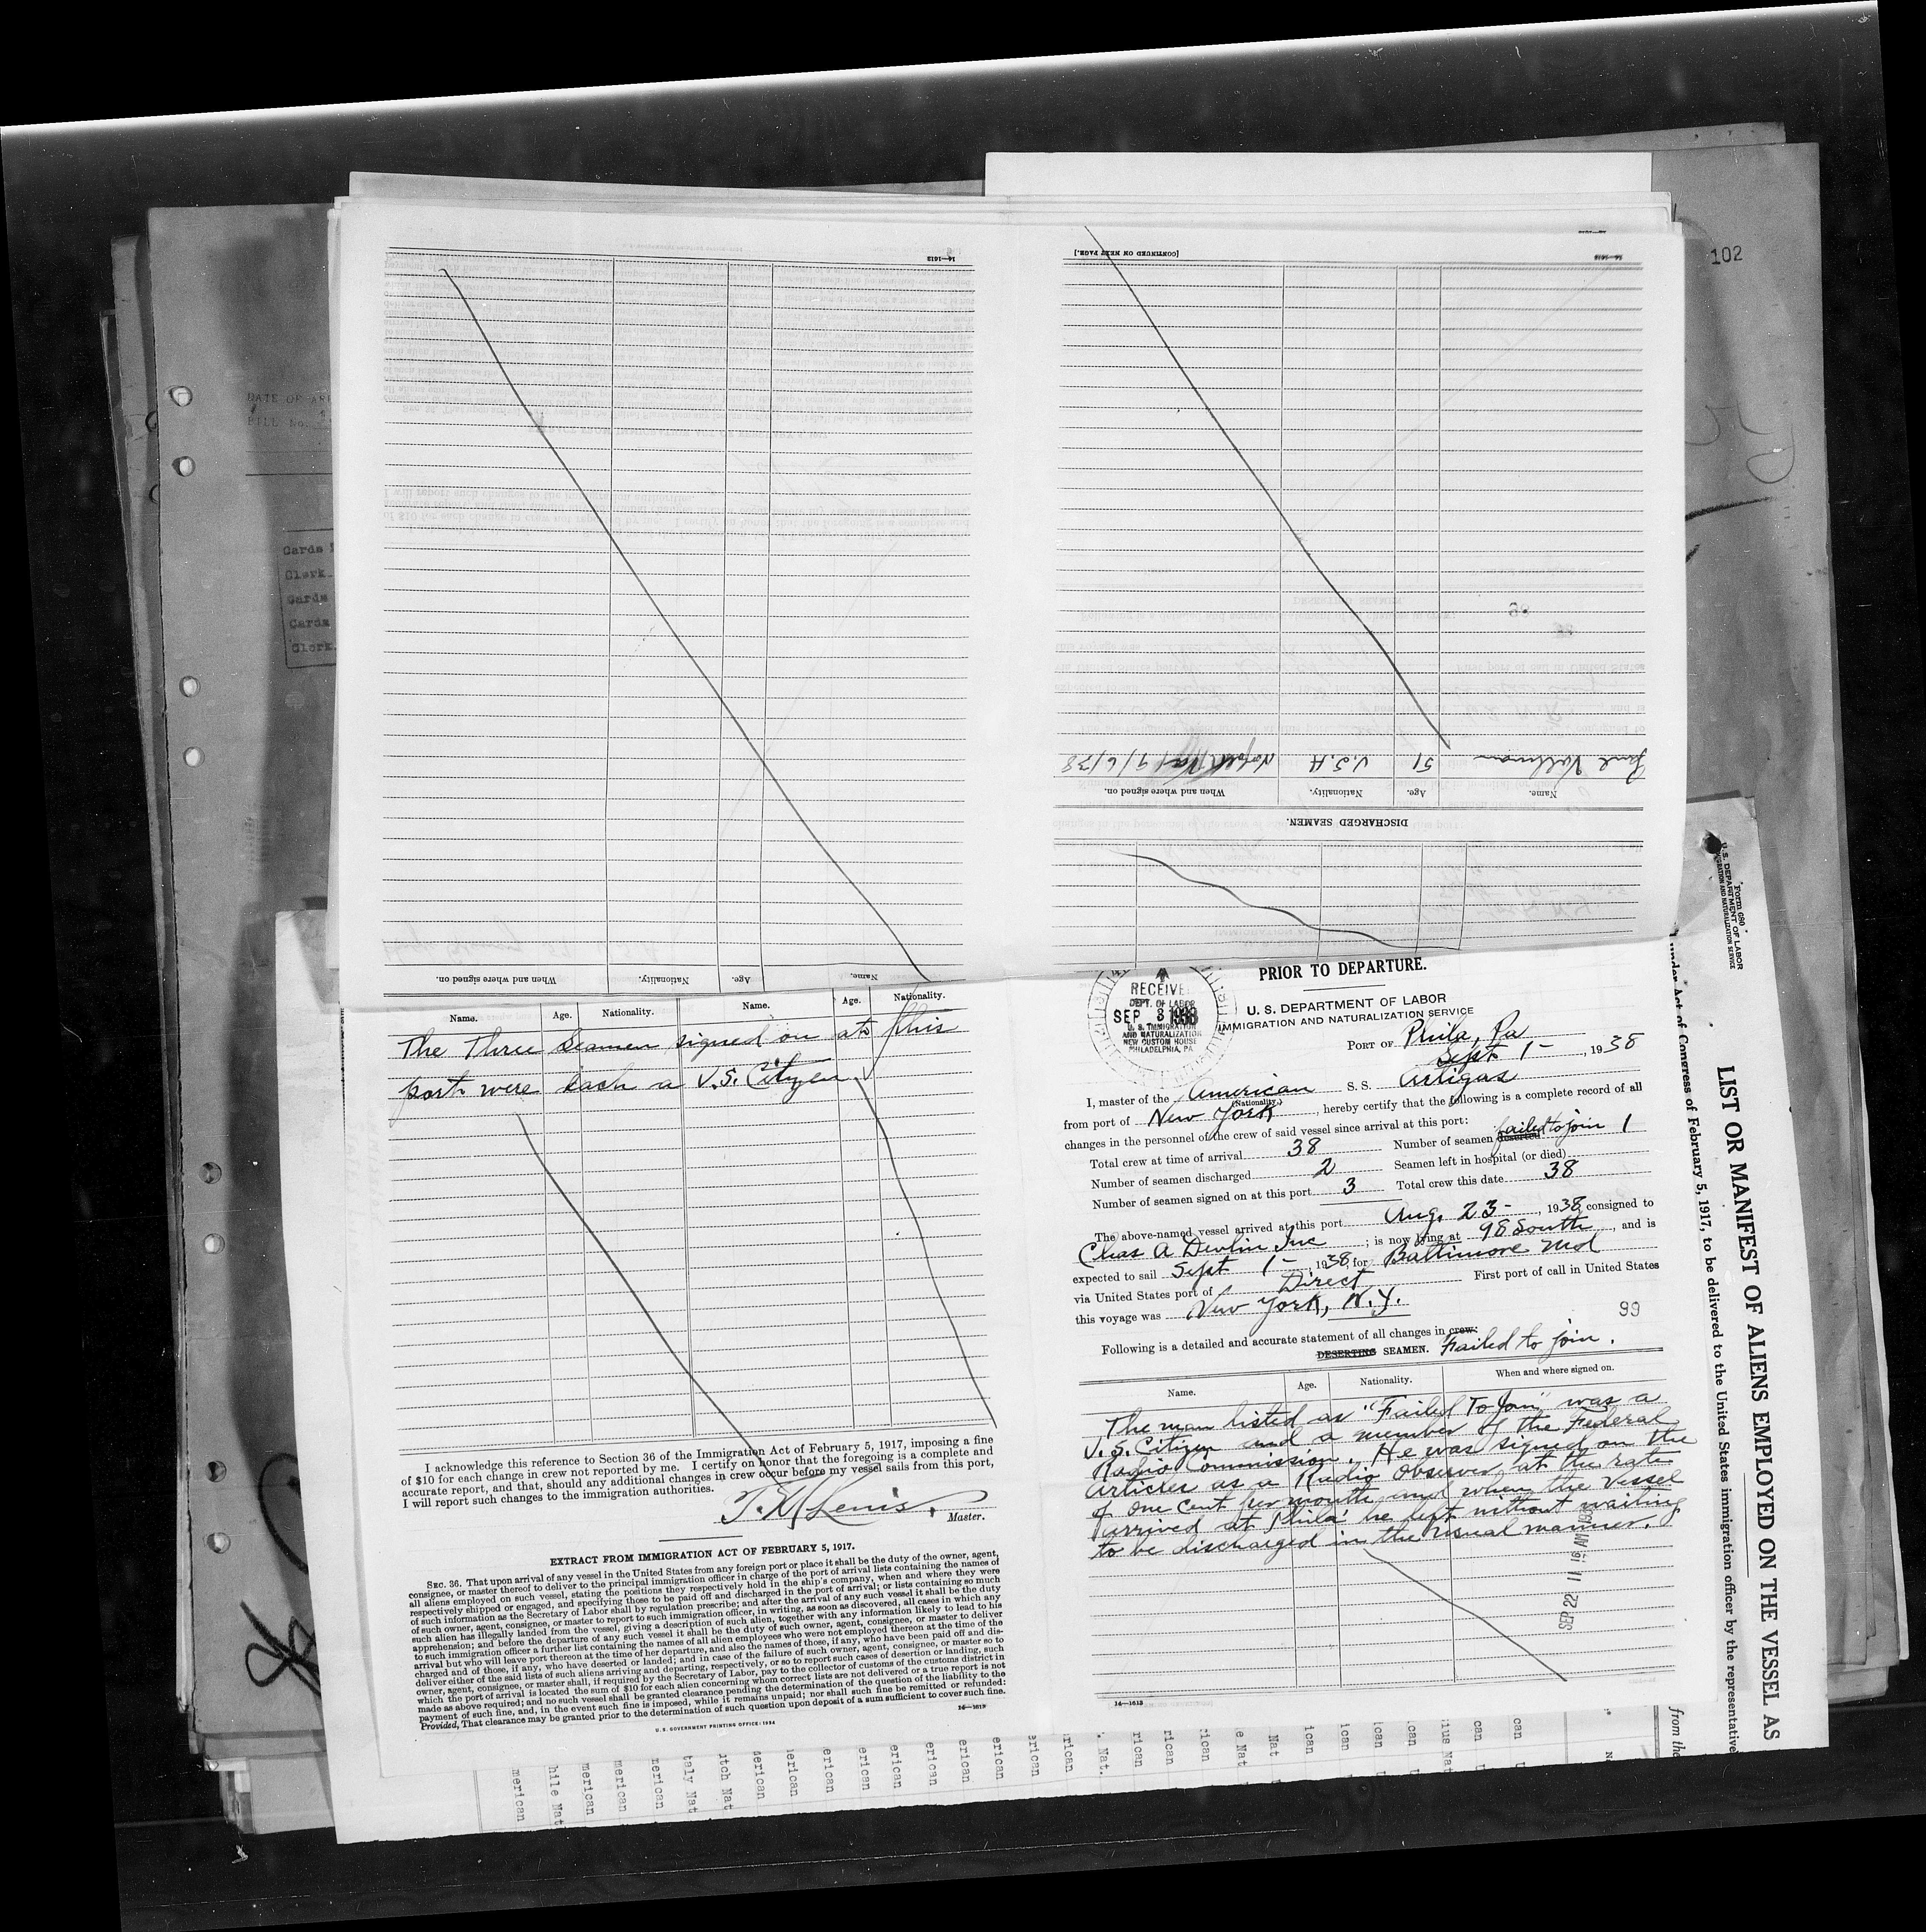 102
14—1613
[CONTINUED ON NEXT PAGE.]
DATE OF
BILL No.
Cards
Clerk
Cards
Cards
Clerk
Paul Vollman 51 U.S.A Norfolk Va 9/6/38
Name. Age. Nationality. When and where signed on.
DISCHARGED SEAMEN.
Name. Age. Nationality. When and where signed on.
Name. Age. Nationality. Name. Age. Nationality.
The Three Seamen signed on at this
port were each a U.S. Citizen
I acknowledge this reference to Section 36 of the Immigration Act of February 5, 1917, imposing a fine
of $10 for each change in crew not reported by me. I certify on honor that the foregoing is a complete and
accurate report, and that, should any additional changes in crew occur before my vessel sails from this port,
I will report such changes to the immigration authorities.
Master.
EXTRACT FROM IMMIGRATION ACT OF FEBRUARY 5, 1917.
SEC. 36. That upon arrival of any vessel in the United States from any foreign port or place it shall be the duty of the owner, agent,
consignee, or master thereof to deliver to the principal immigration officer in charge of the port of arrival lists containing the names of
all aliens employed on such vessel, stating the positions they respectively hold in the ship's company, when and where they were
respectively shipped or engaged, and specifying those to be paid off and discharged in the port of arrival; or lists containing so much
of such information as the Secretary of Labor shall by regulation prescribe; and after the arrival of any such vessel it shall be the duty
of such owner, agent, consignee, or master to report to such immigration officer, in writing, as soon as discovered, all cases in which any
such alien has illegally landed from the vessel, giving a description of such alien, together with any information likely to lead to his
apprehension; and before the departure of any such vessel it shall be the duty of such owner, agent, consignee, or master to deliver
to such immigration officer a further list containing the names of all alien employees who were not employed thereon at the time of the
arrival but who will leave port thereon at the time of her departure, and also the names of those, if any, who have been paid off and dis-
charged and of those, if any, who have deserted or landed; and in case of the failure of such owner, agent, consignee, or master so to
deliver either of the said lists of such aliens arriving and departing, respectively, or so to report such cases of desertion or landing, such
owner, agent, consignee, or master shall, if required by the Secretary of Labor, pay to the collector of customs of the customs district in
which the port of arrival is located the sum of $10 for each alien concerning whom correct lists are not delivered or a true report is not
made as above required; and no such vessel shall be granted clearance pending the determination of the question of the liability to the
payment of such fine, and, in the event such fine is imposed, while it remains unpaid; nor shall such fine be remitted or refunded:
Provided, That clearance may be granted prior to the determination of such question upon deposit of a sum sufficient to cover such fine.
U.S. GOVERNMENT PRINTING OFFICE: 1934
14—1613
PRIOR TO DEPARTURE.
RECEIVED
DEPT. OF LABOR
SEP 3 1938
U. S. IMMIGRATION
AND NATURALIZATION
NEW CUSTOM HOUSE
PHILADELPHIA, PA
U. S. DEPARTMENT OF LABOR
IMMIGRATION AND NATURALIZATION SERVICE
PORT OF Phila, Pa
Sept 1 - , 1938
I, master of the American S. S. Artigas
(Nationality.)
from port of New York, hereby certify that the following is a complete record of all
changes in the personnel of the crew of said vessel since arrival at this port:
Total crew at time of arrival 38 Number of seamen deserted failed to join 1
Number of seamen discharged 2 Seamen left in hospital (or died)
Number of seamen signed on at this port 3 Total crew this date 38
The above-named vessel arrived at this port Aug. 23 - , 1938, consigned to
Chas A Devlin Inc ; is now lying at 98 South , and is
expected to sail Sept 1 - , 1938, for Baltimore Md
via United States port of Direct First port of call in United States
this voyage was New York, N.Y.
99
Following is a detailed and accurate statement of all changes in crew:
DESERTING SEAMEN. Failed to join.
Name. Age. Nationality. When and where signed on.
The man listed as "Failed To Join" was a
U.S. Citizen and a member of the Federal
Radio Commission. He was signed on the
articles as a Radio Observer at the rate
of one cent per month and when the vessel
arrived at Phila he left without waiting
to be discharged in the usual manner.
SEP 22 11 16 AM 1938
14—1613
Form 680
U. S. DEPARTMENT OF LABOR
IMMIGRATION AND NATURALIZATION SERVICE
LIST OR MANIFEST OF ALIENS EMPLOYED ON THE VESSEL AS
under Act of Congress of February 5, 1917, to be delivered to the United States immigration officer by the representative
from the